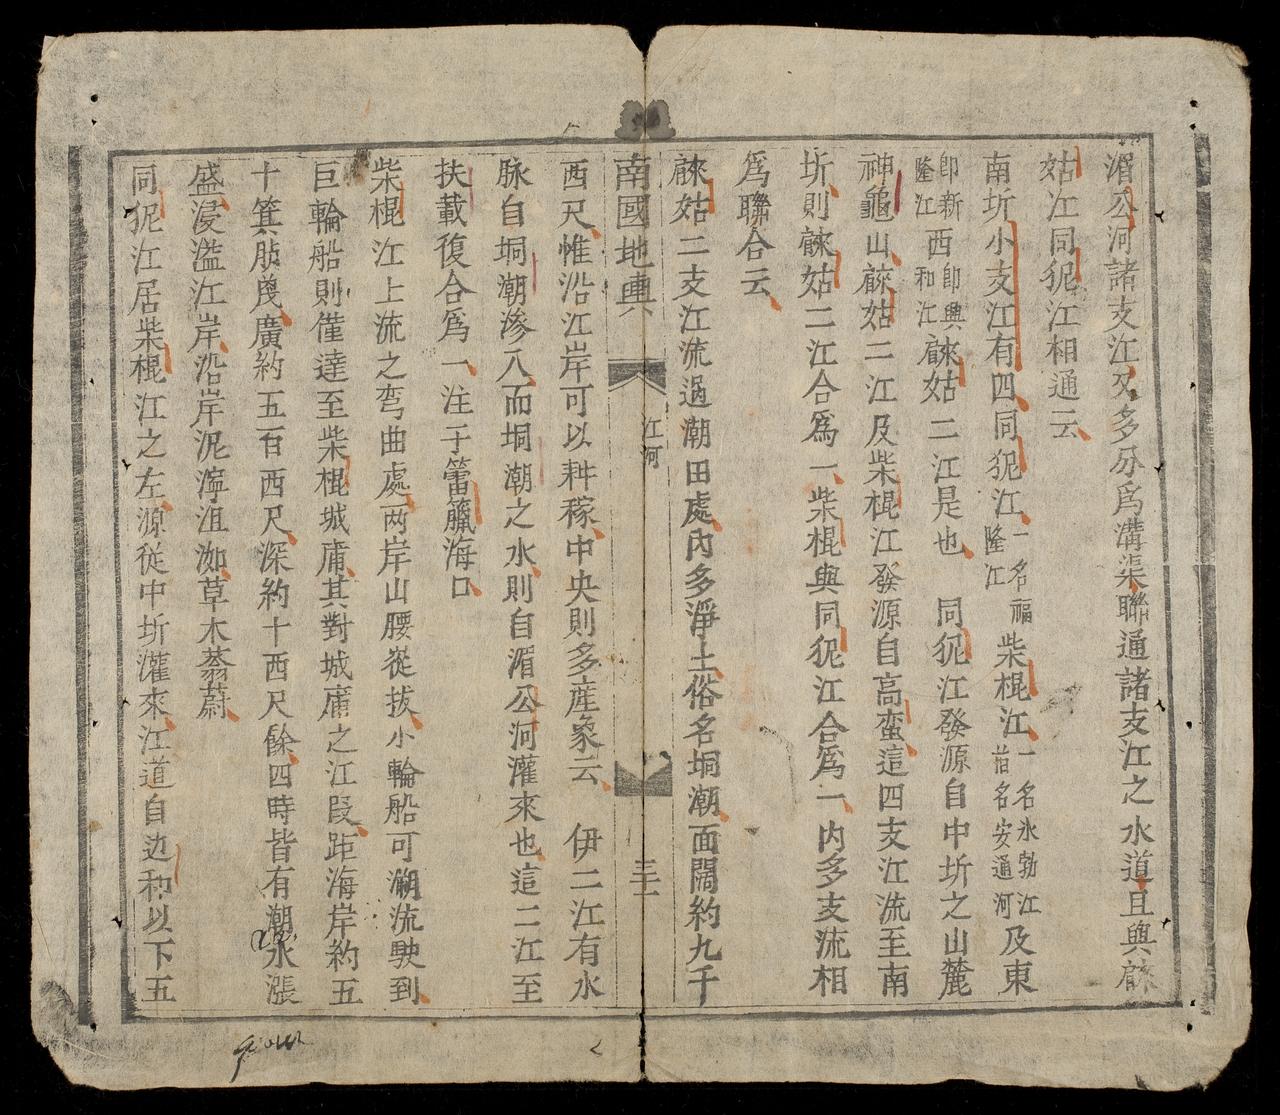 湄公河諸支江又多分爲溝渠聯通諸支江之水道且與𪋿
姑江同狔江相通云
南圻小支江有四同狔江一名福隆江柴棍江一名氷勃江一名安通河及東
卽新隆江西卽興和江𪋿姑二江是也 同狔江發源自中圻之山麓
神龜山𪋿姑二江及柴棍江發源自高蛮這四支江流至南
圻則𪋿姑二江合爲一柴棍與同狔江合爲一內多支流相
爲聯合云
𪋿姑二支江流過潮田處內多淨土俗名垌潮面闊約九千
南國地輿
江河
三十一
西尺惟沿江岸可以耕稼中央則多産象云 伊二江有水
脉自垌潮滲入而垌潮之水則自湄公河灌來也這二江至
扶載復合爲一注于䉪臘海口
柴棍江上流之弯曲處両岸山腰從拔小輪船可溯流駛到
巨輪船則僅達至柴棍城庯其對城庯之江段距海岸約五
十箕𦙫㦖廣約五百西尺深約十西尺餘四時皆有潮水漲
盛浸濫江岸沿岸泥濘沮洳草木蓊蔚
同狔江居柴棍江之左源從中圻灌來江道自边和以下五